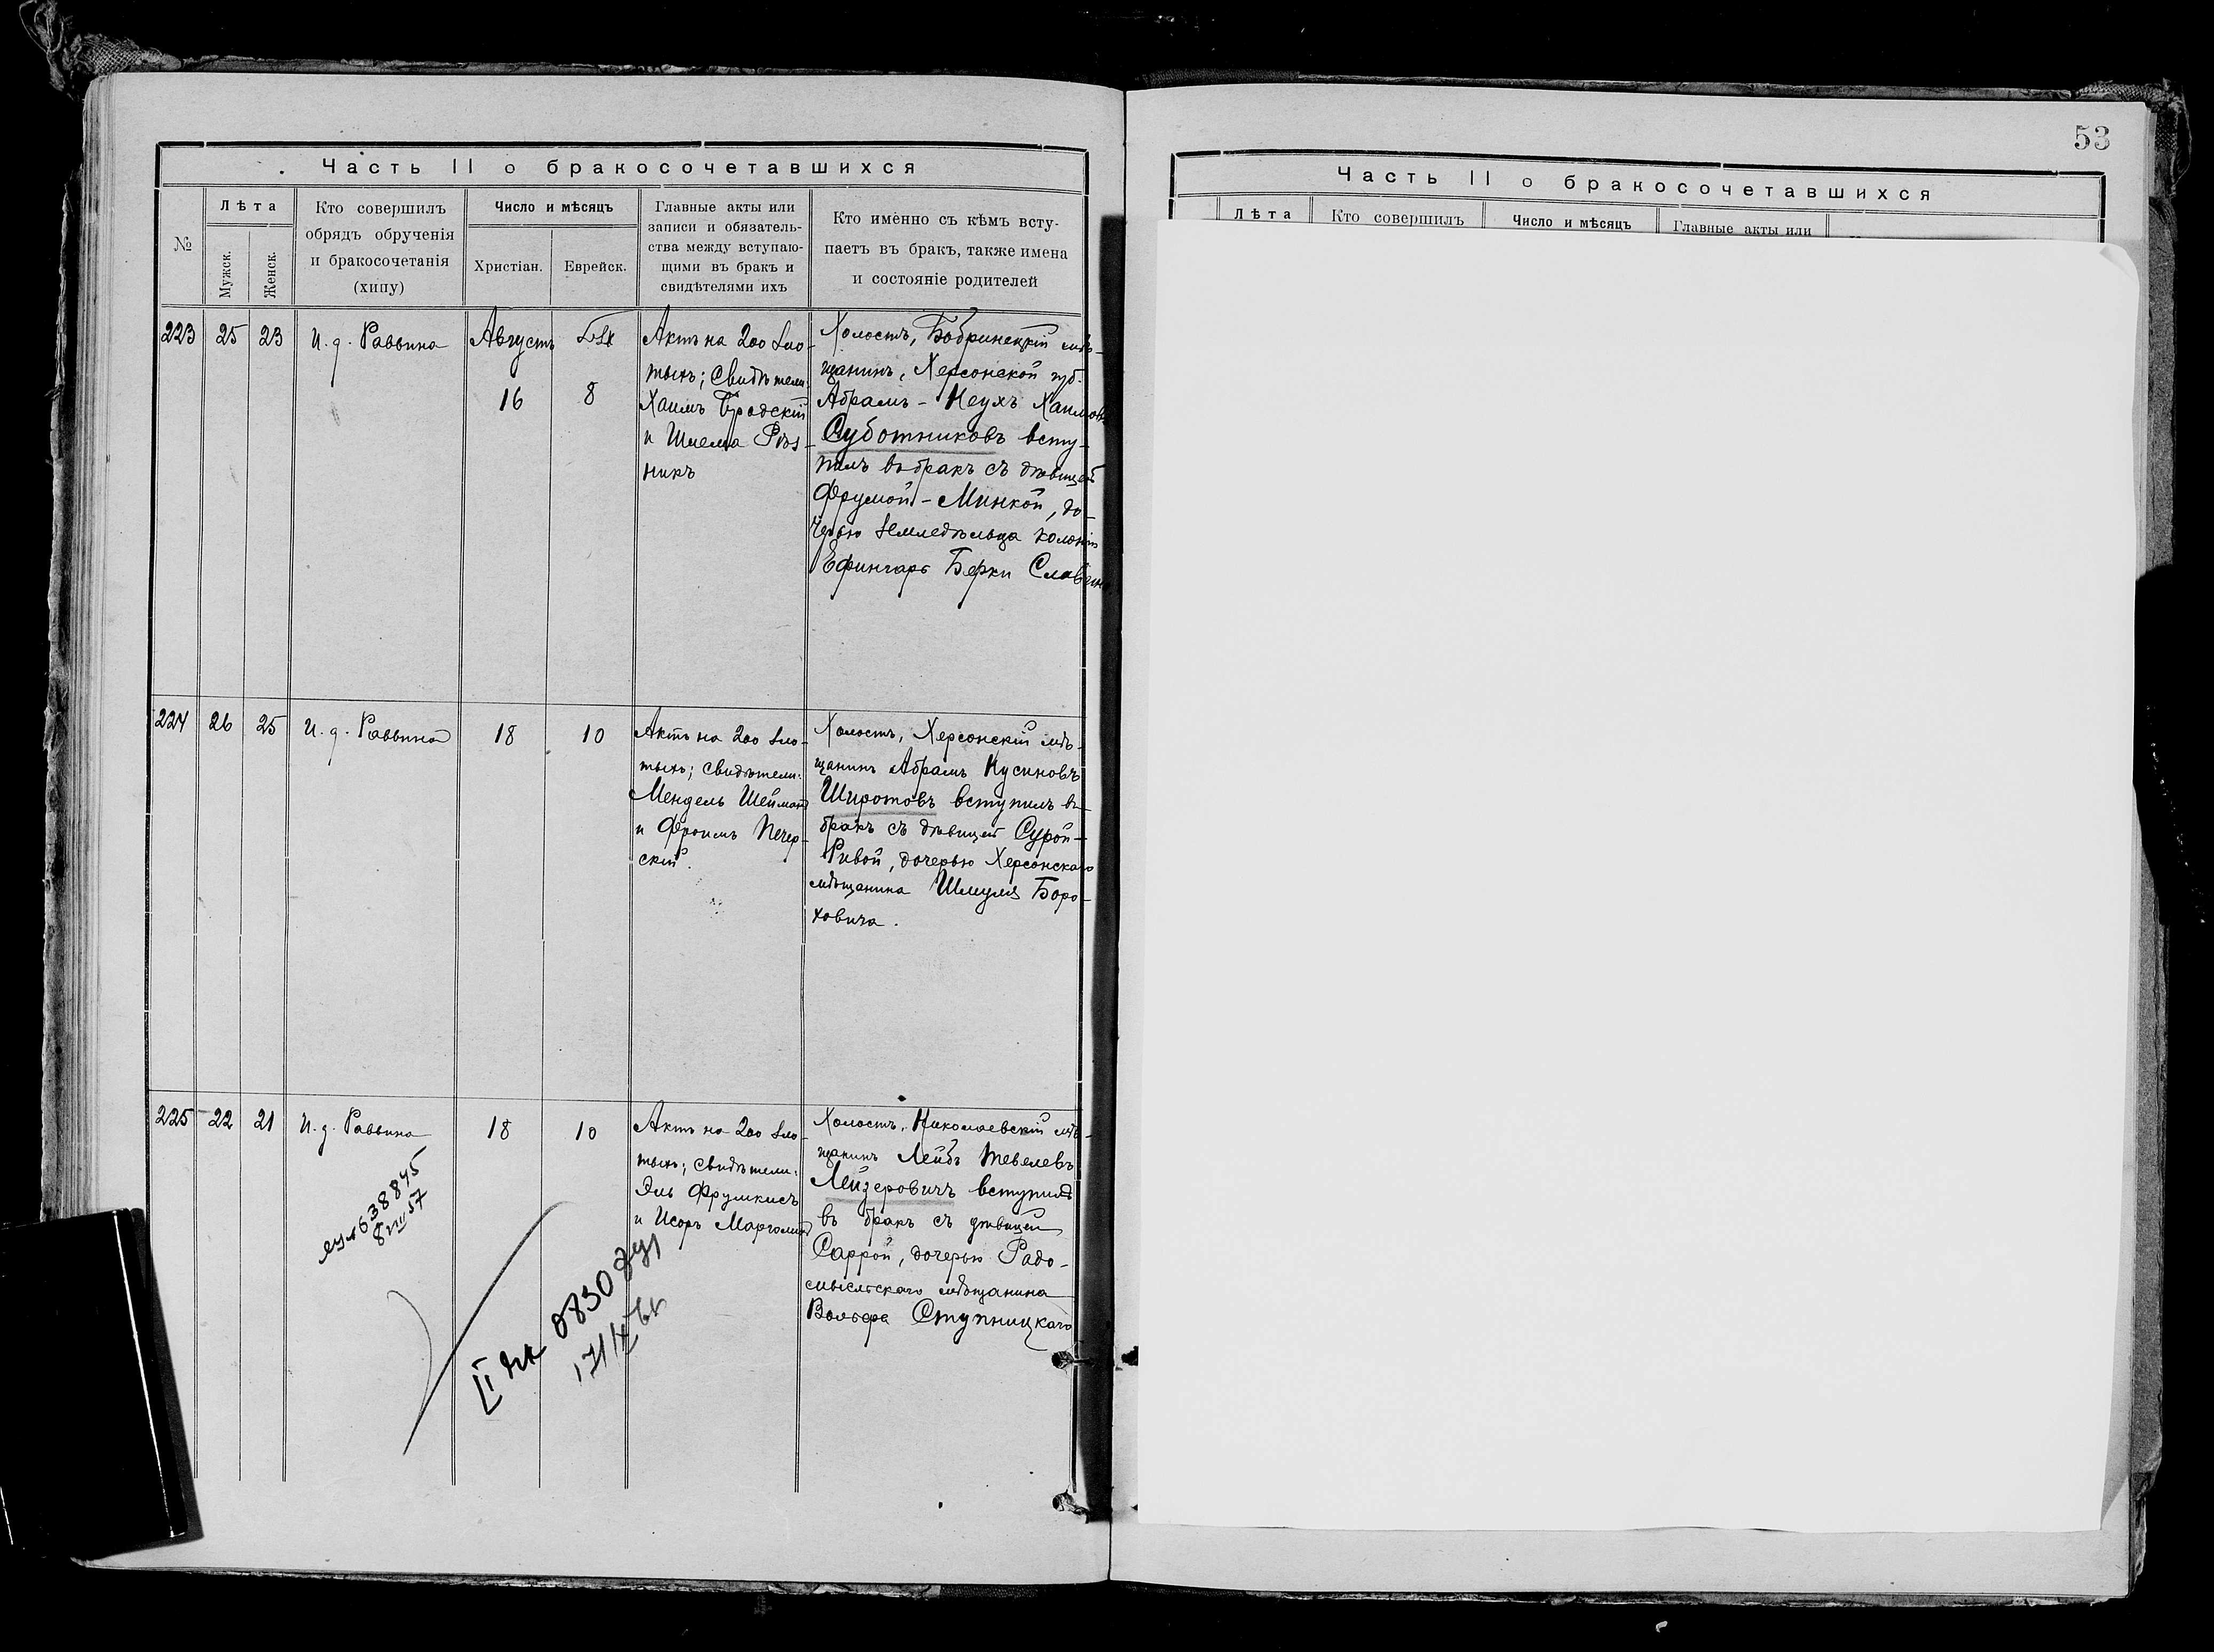 Часть II о бракосочетавшихся
№
Лѣта
Мужск.
Женск.
Кто совершилъ
обрядъ обрученія
и бракосочетанія
(хипу)
Число и мѣсяцъ
Христіан.
Еврейск.
Главные акты или
записи и обязатель-
ства между вступаю-
щими въ бракъ и
свидѣтелями ихъ
Кто именно съ кѣмъ всту-
паетъ въ бракъ, также имена
и состояніе родителей
223
25
23
И. д. Раввина
Августъ
16
8
Актъ на 200 зло-
тыхъ; Свидѣтели:
Хаимъ Бродскій
и Шлема Рѣз-
никъ
Холостъ, Бобринецкій мѣ-
щанинъ, Херсонской губ.
Абрамъ-Неухъ Хаимовъ
Суботниковъ всту-
пилъ въ бракъ съ дѣвицей
Фрумой-Минкой, до-
черью земледѣльца колоніи
Ефингаръ Берки Славина
224
26
25
И. д. Раввина
18
10
Актъ на 200 зло-
тыхъ; свидѣтели:
Мендель Шейман
и Фроимъ Печер-
скій.
Холостъ, Херсонскій мѣ-
щанинъ Абрамъ Нусиновъ
Широтовъ вступилъ въ
бракъ съ дѣвицей Сурой-
Ривой, дочерью Херсонскаго
мѣщанина Шмуля Боро-
ховича.
225
22
21
И. д. Раввина
18
10
Актъ на 200 зло-
тыхъ; свидѣтели:
Эль Фрумкисъ
и Исоръ Марголин
Холостъ, Николаевскій мѣ-
щанинъ Лейбъ Тевелевъ
Лейзеровичъ вступилъ
въ бракъ съ дѣвицей
Саррой, дочерью Радо-
мысльскаго мѣщанина
Вольфа Ступницкаго
638845
8 VIII 57
53
Часть II о бракосочетавшихся
Лѣта
Кто совершилъ
Число и мѣсяцъ
Главные акты или